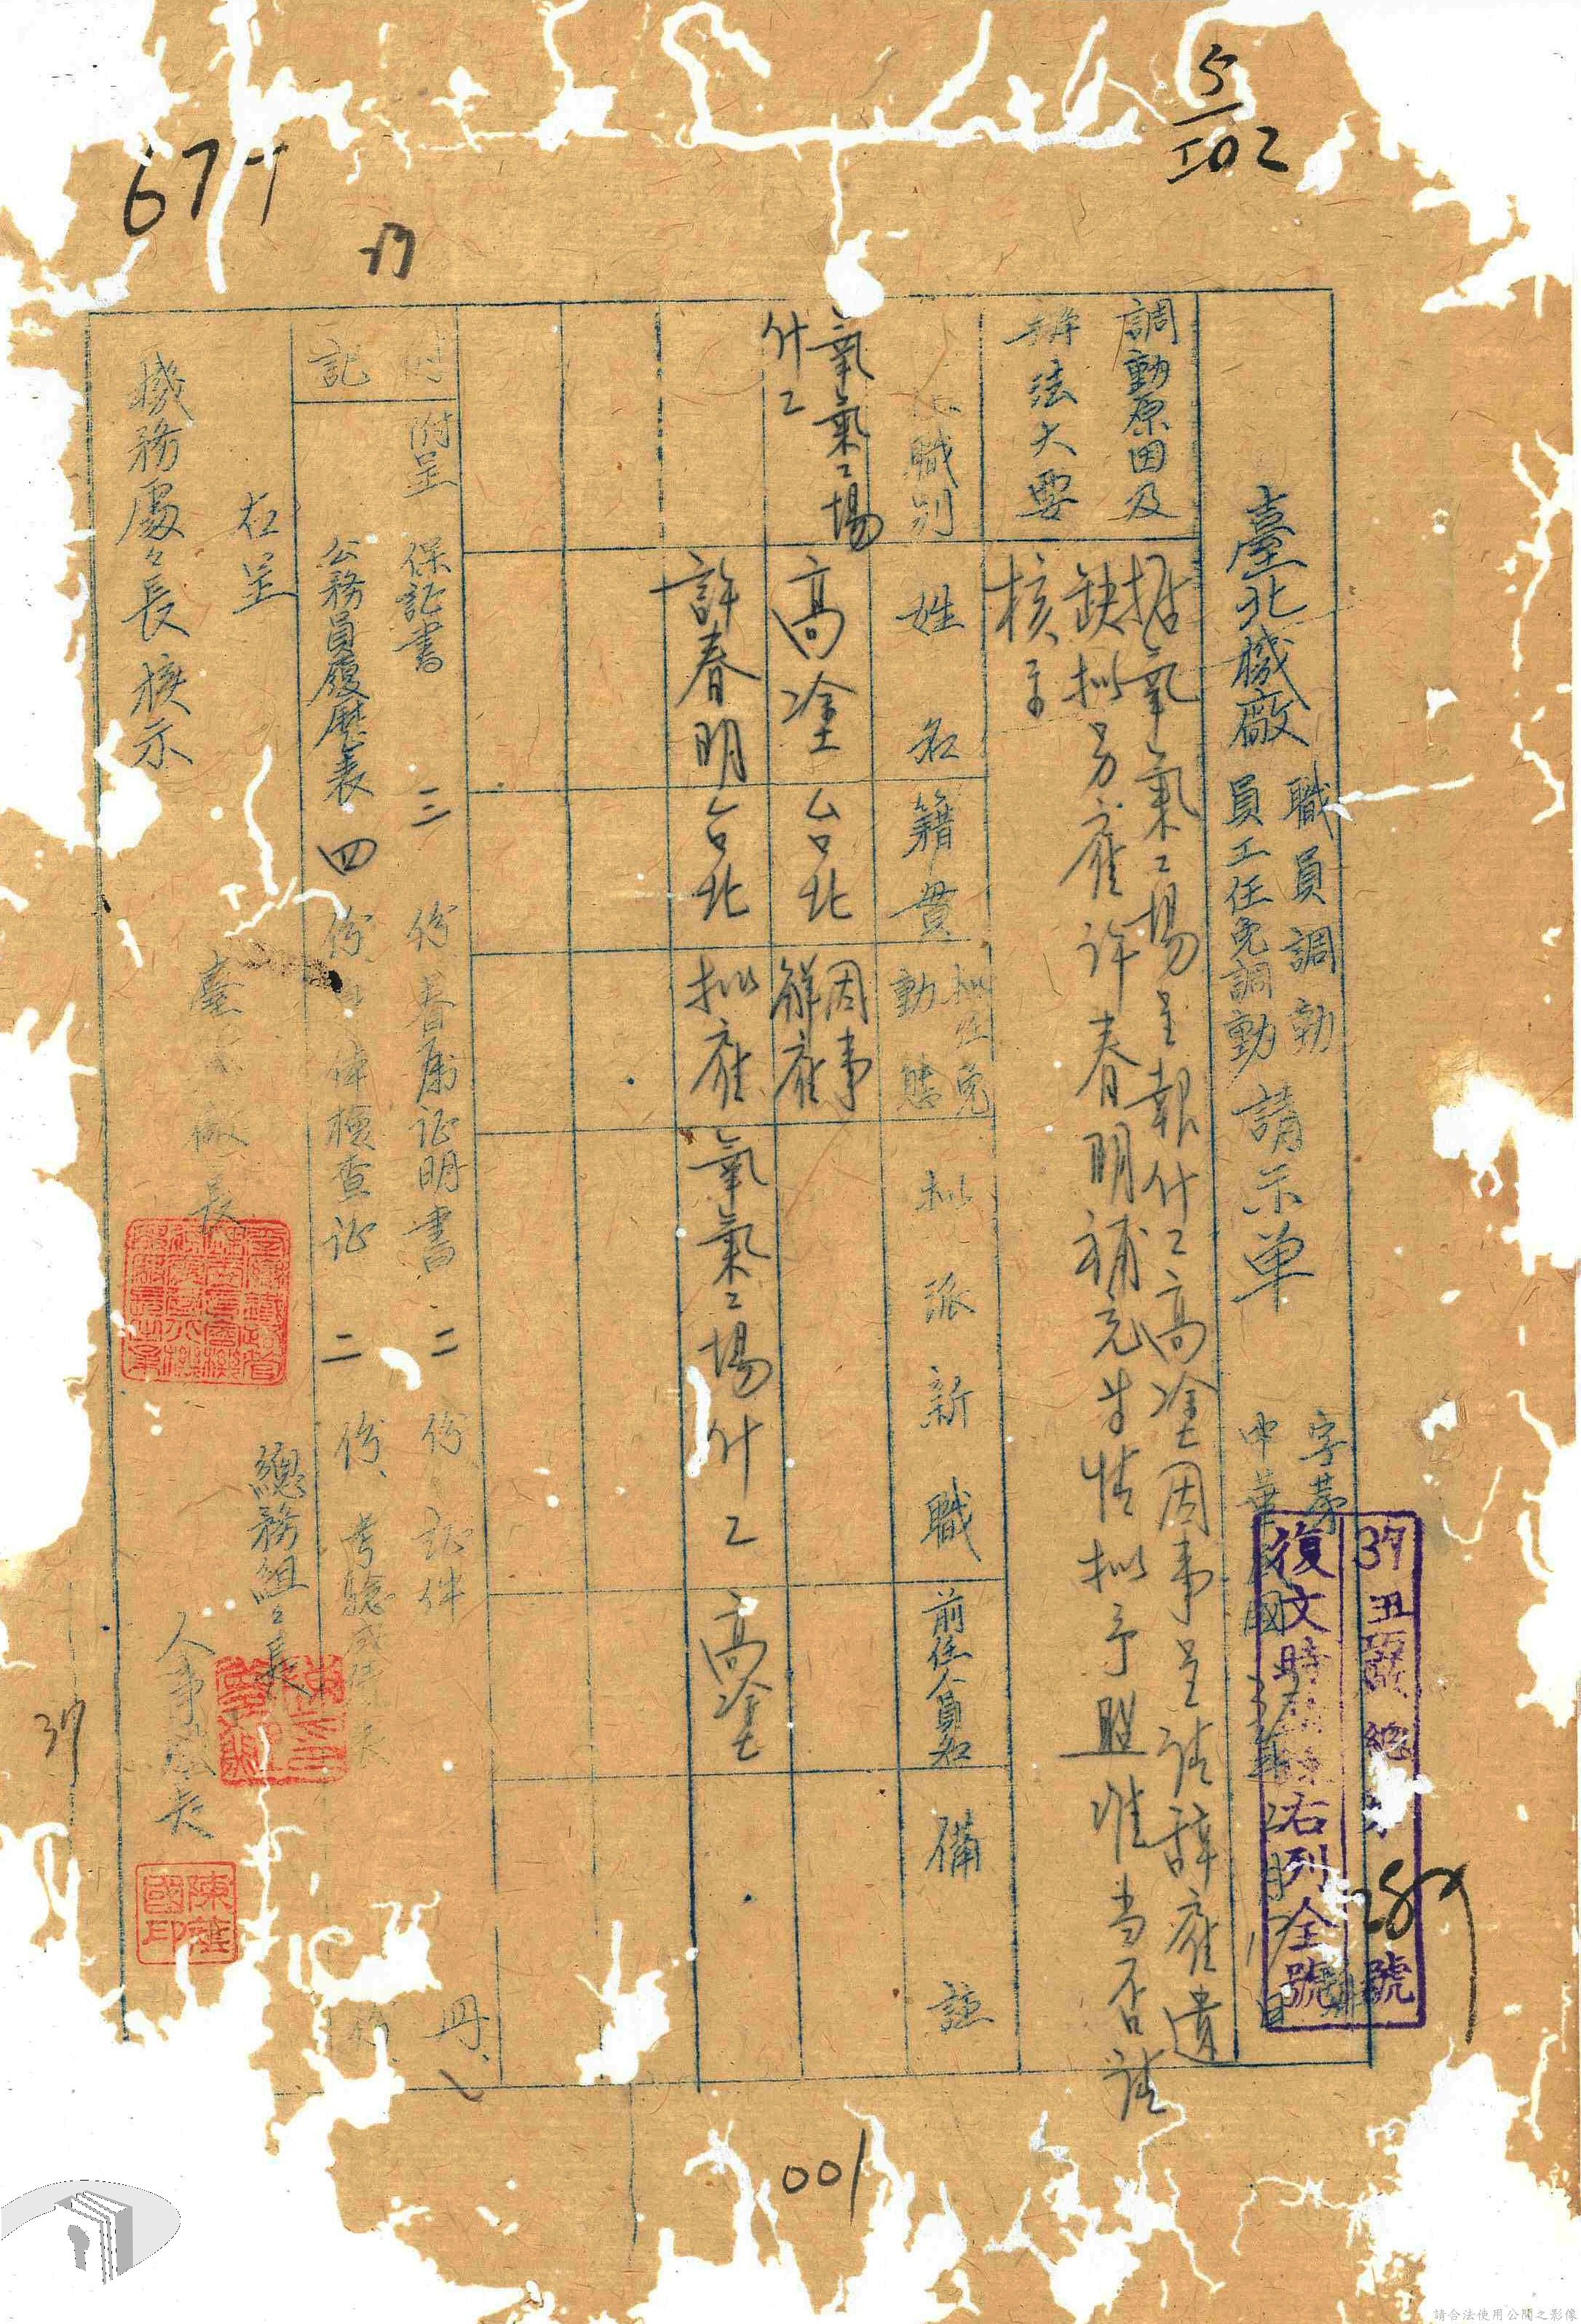 5/102
677
37丑廠總字 287號
復文時請錄右列全號
字第
中華民國三十七年二月17日
臺北機廠 職員調動 員工任免調動 請示单
調動原因及
辦法大要
据氧氣工場呈報什工高塗因事呈請辞雇遺
缺拟另雇许春明補充等情拟予照准当否請
核示
職別
姓名
籍貫
拟任免
動態
拟派新職
前任人員名
備註
氧氣工場
什工
高塗
台北
因事
解雇
許春明
台北
拟雇
氧氣工場什工
高塗
附記
附呈 保証書 三 份、眷属证明書 二 份、証件 冊、
公務員履歷表 四 份、身体檢查证 二 份、考驗成績表 份
右呈
機務處々長核示
臺北廠長
總務組々長
人事
陳蓮國印
37
001
請合法使用公開之影像